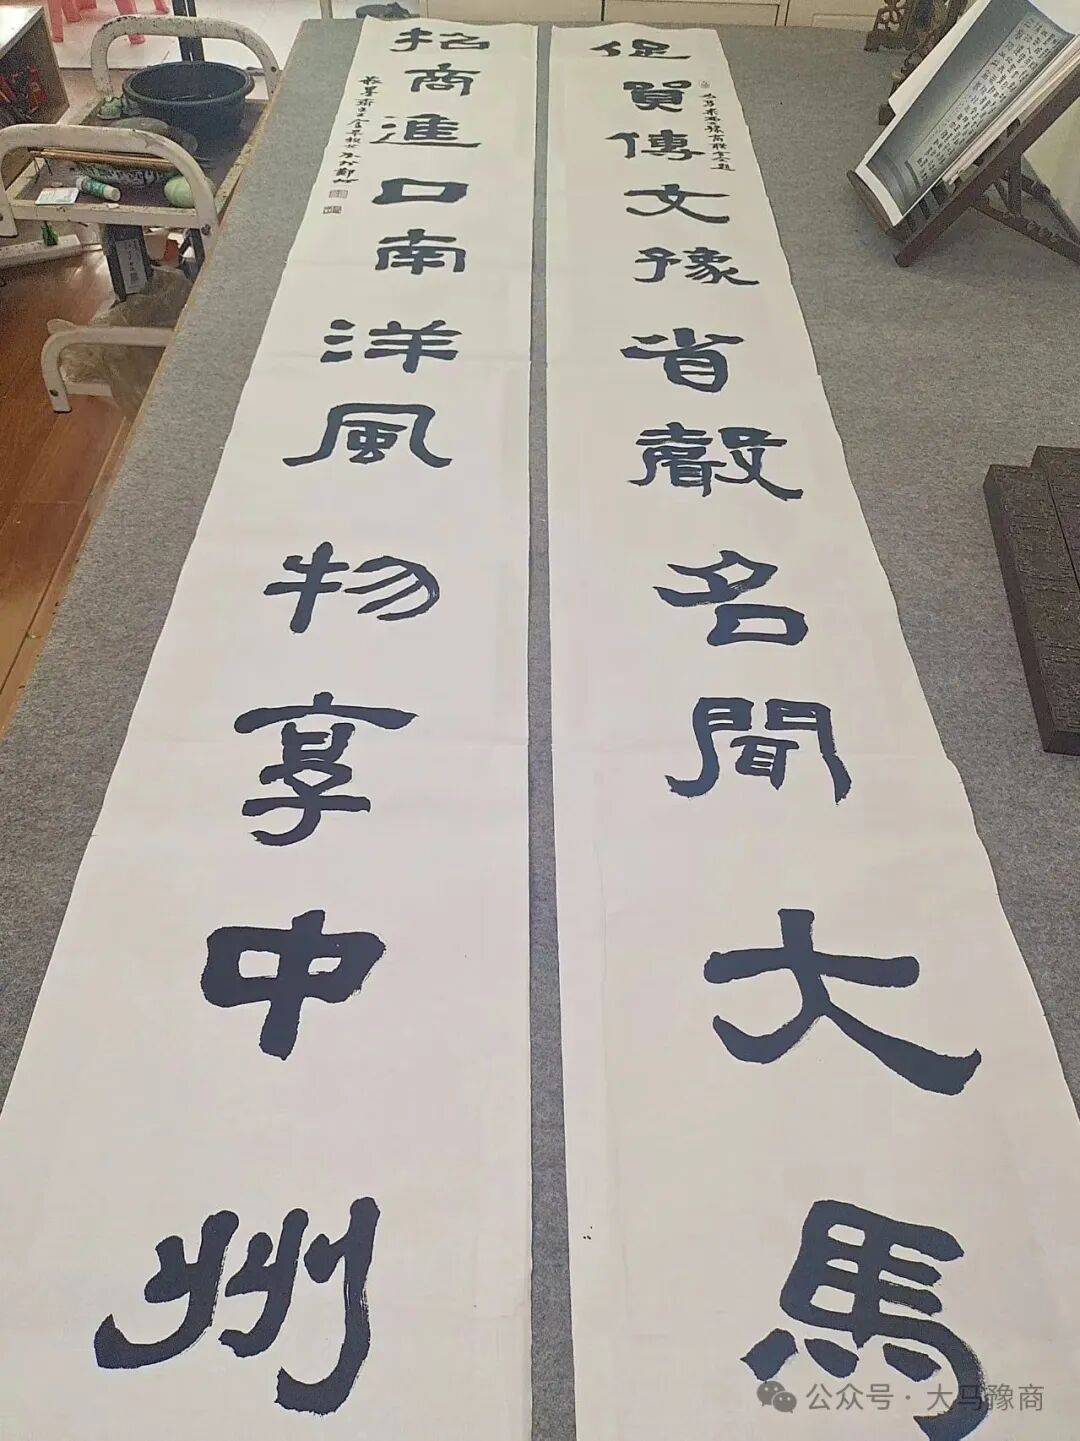 促貿傳文豫省聲名聞大馬
招商進口南洋風物享中州
公众号 · 大马豫商